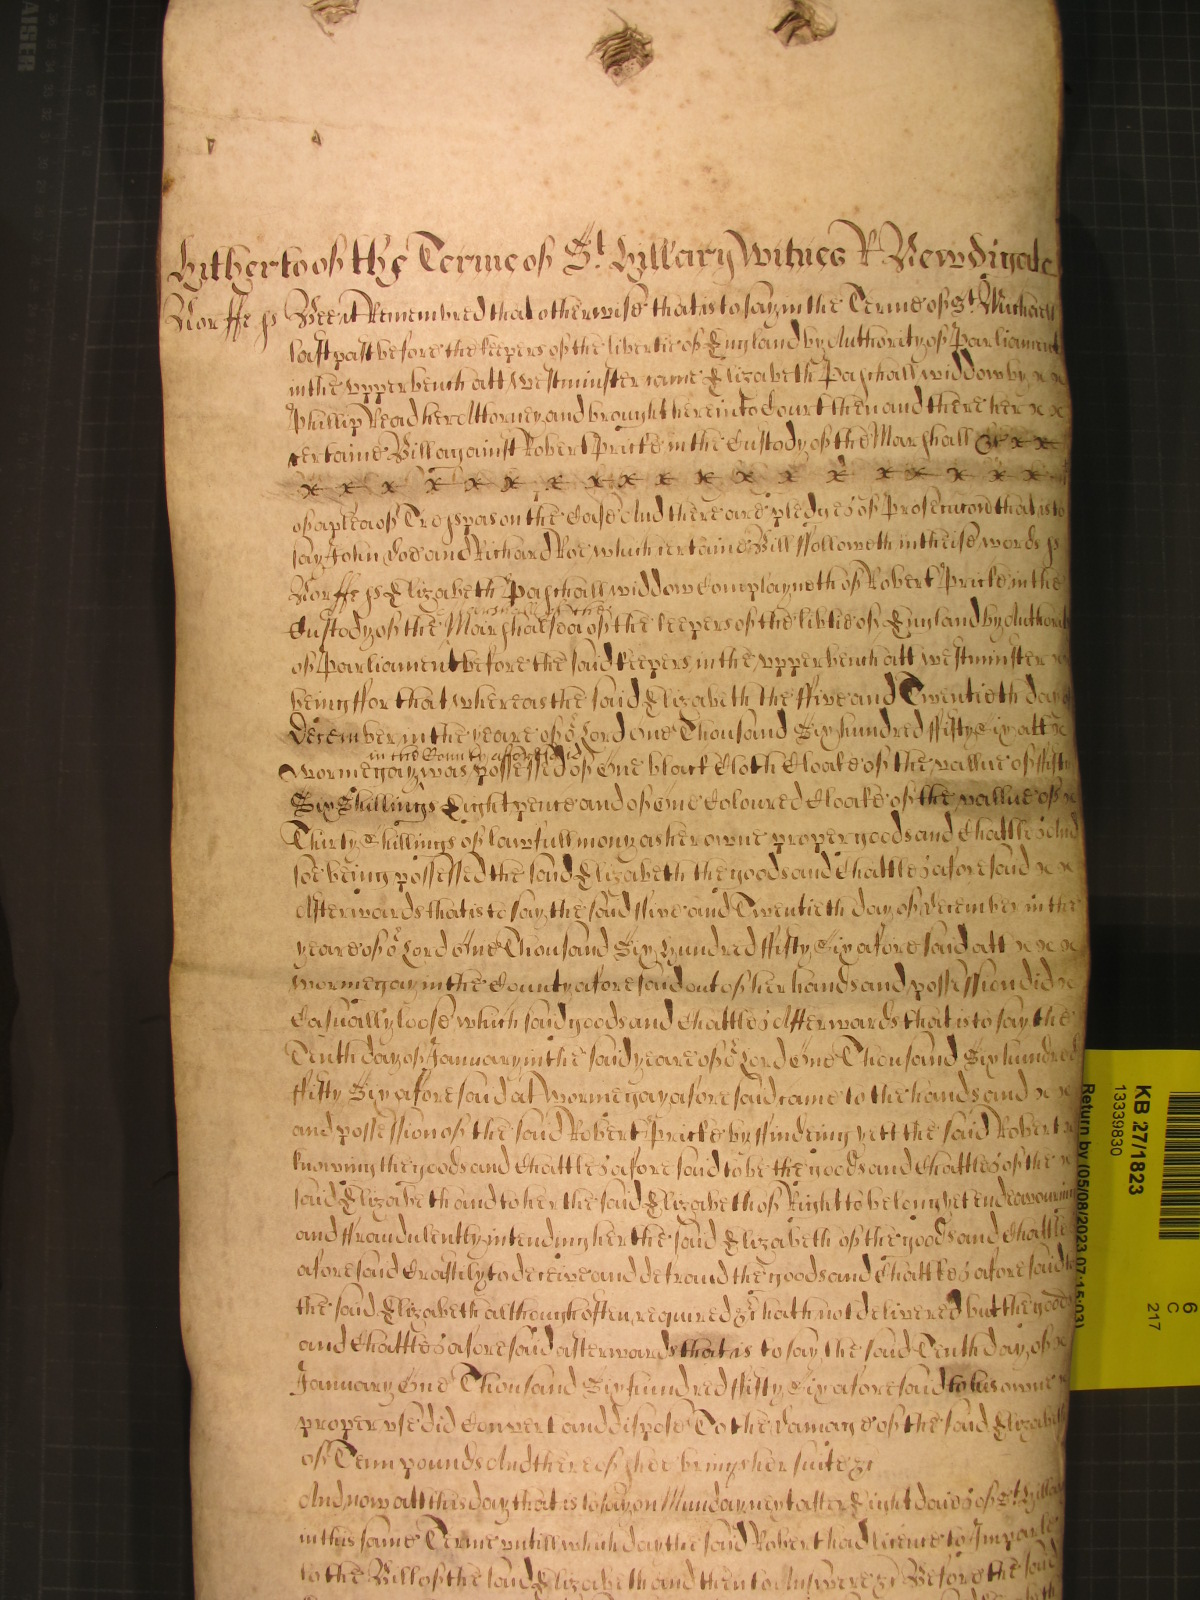 Hitherto of the Terme of St. Hillary Witnes R Newdigate
Norff ss Bee it Remembred that otherwise that is to say in the Terme of St. Michaell
last past before the keepers of the libertie of England by Authority of Parliament
in the upper bench att Westminster came Elizabeth Paschall widdow by x x
Phillip Read her Attorney and brought here into Court then and there her x x
certaine Bill against Robert Pricke in the Custody of the Marshall &c x x
x x x x x x x x x x x x x x x x x
of a plea of Trespas on the Case And there are pledges of Prosecucion that is to
say John Doe and Richard Roe which certaine Bill ffolloweth in theise words ss
Norff ss Elizabeth Paschall widdow Complayneth of Robert Pricke in the
Custody of the Marshalsea of the keepers of the libtie of England by Authority
of Parliament before the said keepers in the upper bench att Westminster x
being ffor that whereas the said Elizabeth the ffive and Twentieth day of
December in the yeare of or Lord One Thousand Six hundred ffifty Six att x
in the County aforesaid
Wormegay was possessed of One black Cloth Cloake of the vallue of fifty
Six Shillings Eight pence and of One Coloured Cloake of the vallue of x
Thirty Shillings of lawfull mony as her owne proper goods and Chattles And
soe being possessed the said Elizabeth the goods and Chattles aforesaid x x
Afterwards that is to say the said ffive and Twentieth day of December in the
yeare of or Lord One Thousand Six Hundred ffifty Six aforesaid att x x x
Wormegay in the County aforesaid out of her hands and possession did x
Casually loose which said goods and Chattles Afterwards that is to say the
Tenth day of January in the said yeare of or Lord One Thousand Six hundred
ffifty Six aforesaid at Wormegay aforesaid came to the hands and x x
and possession of the said Robert Pricke by ffindeing yett the said Robert x
knowing the goods and Chattles aforesaid to be the goods and Chattles of the x
said Elizabeth and to her the said Elizabeth of Right to belong yet endeavouring
and ffraudulently intending her the said Elizabeth of the goods and Chattles
aforesaid Craftily to deceive and defraud the goods and Chattles aforesaid to
the said Elizabeth although often required &c hath not delivered but the goods
and Chattles aforesaid afterwards that is to say the said Tenth day of x
January One Thousand Six hundred ffifty Six aforesaid to his owne x
proper use did Convert and dispose To the damage of the said Elizabeth
of Tenn pounds And thereof shee brings her suite &c
And now att this day that is to say on Munday next after Eight daies of St. Hillary
in this same Terme untill which day the said Robert had licence to Imparle
to the Bill of the said Elizabeth and then to Answere &c Before the said
KB 27/1823
13339830
Return by (05/08/2023 07:15:03)
6
C
217